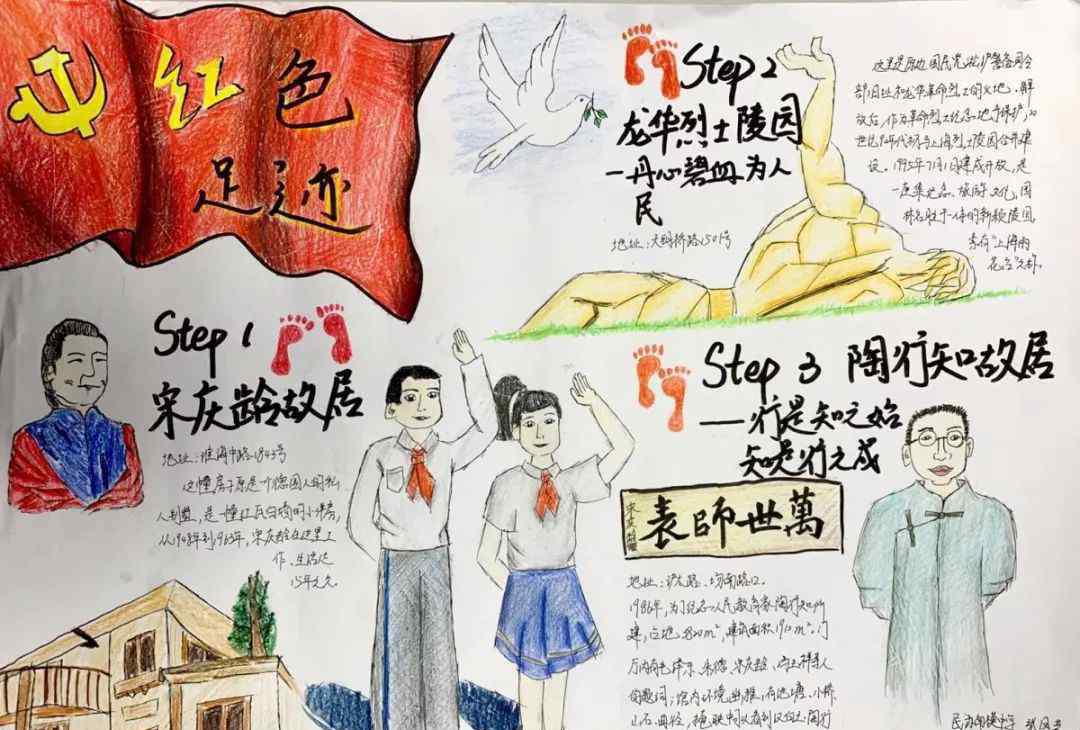 红色
足迹
Step 1
宋庆龄故居
地址:淮海中路1843号
这幢房子原是一个德国人的私
人别墅,是一幢红瓦白墙的小洋房,
从1948年到1963年,宋庆龄在这里工
作、生活达
15年之久
Step 2
龙华烈士陵园
一丹心碧血为人
民
地址:大 桥路1501号
这里是原 国民党淞沪警备司令
部旧址和龙华革命烈士 地。解
放后,作为革命烈士纪念地予保护,20
世纪90年代初与上海烈士陵园合并建
设。1995年7月1日建成开放,是
一座集纪念、旅游、文化、园
林名胜于一体的新颖陵园,
素有“上海雨
花台”之称。
Step 3 陶行知故居
——行是知之始
知是行之成
表師世萬
地址:沪太路、场南路口。
1986年,为了纪念人民教育家陶行知所
建,占地 820m²,建筑面积 m²。门
厅内有毛泽东、朱德、宋庆龄、 等人
的题词;馆内环境幽雅,有池塘、小桥
山石、曲径,掩映中可看到汉白玉陶行